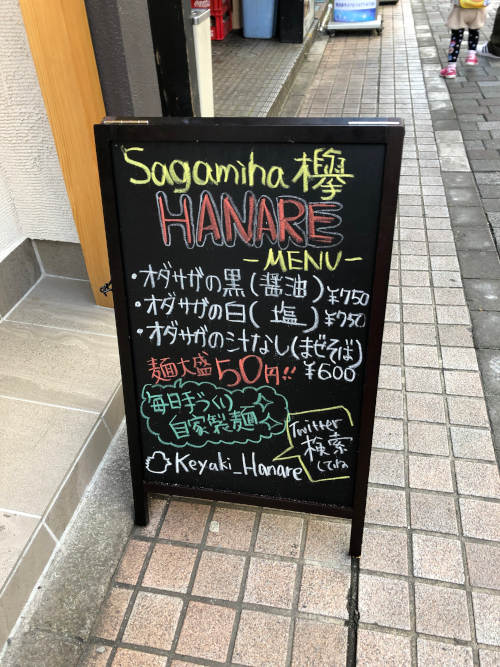 Sagamiha 欅
HANARE
-MENU-
・オダサガの黒(醤油)¥750
・オダサガの白(塩)¥750
・オダサガの汁なし(まぜそば)
¥600
麺大盛50円!!
毎日手づくり
自家製麺
Twitter
検索
してね
Keyaki_Hanare